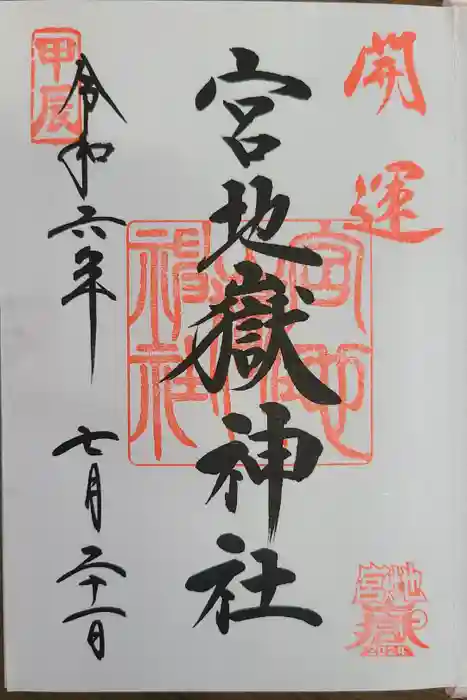 開運
宮地嶽神社
宮地嶽神社
令和六年 七月二十一日
甲辰
宮地嶽
2024